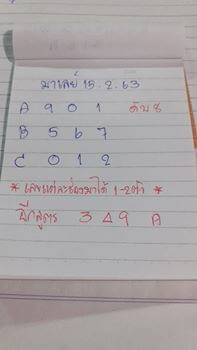 มาเลย์ 15.2.63
A 9 0 1 ดับ 8
B 5 6 7
C 0 1 2
* เลขแต่ละช่องมาได้ 1-2ตัว *
ฉีกสูตร 3 4 9 A